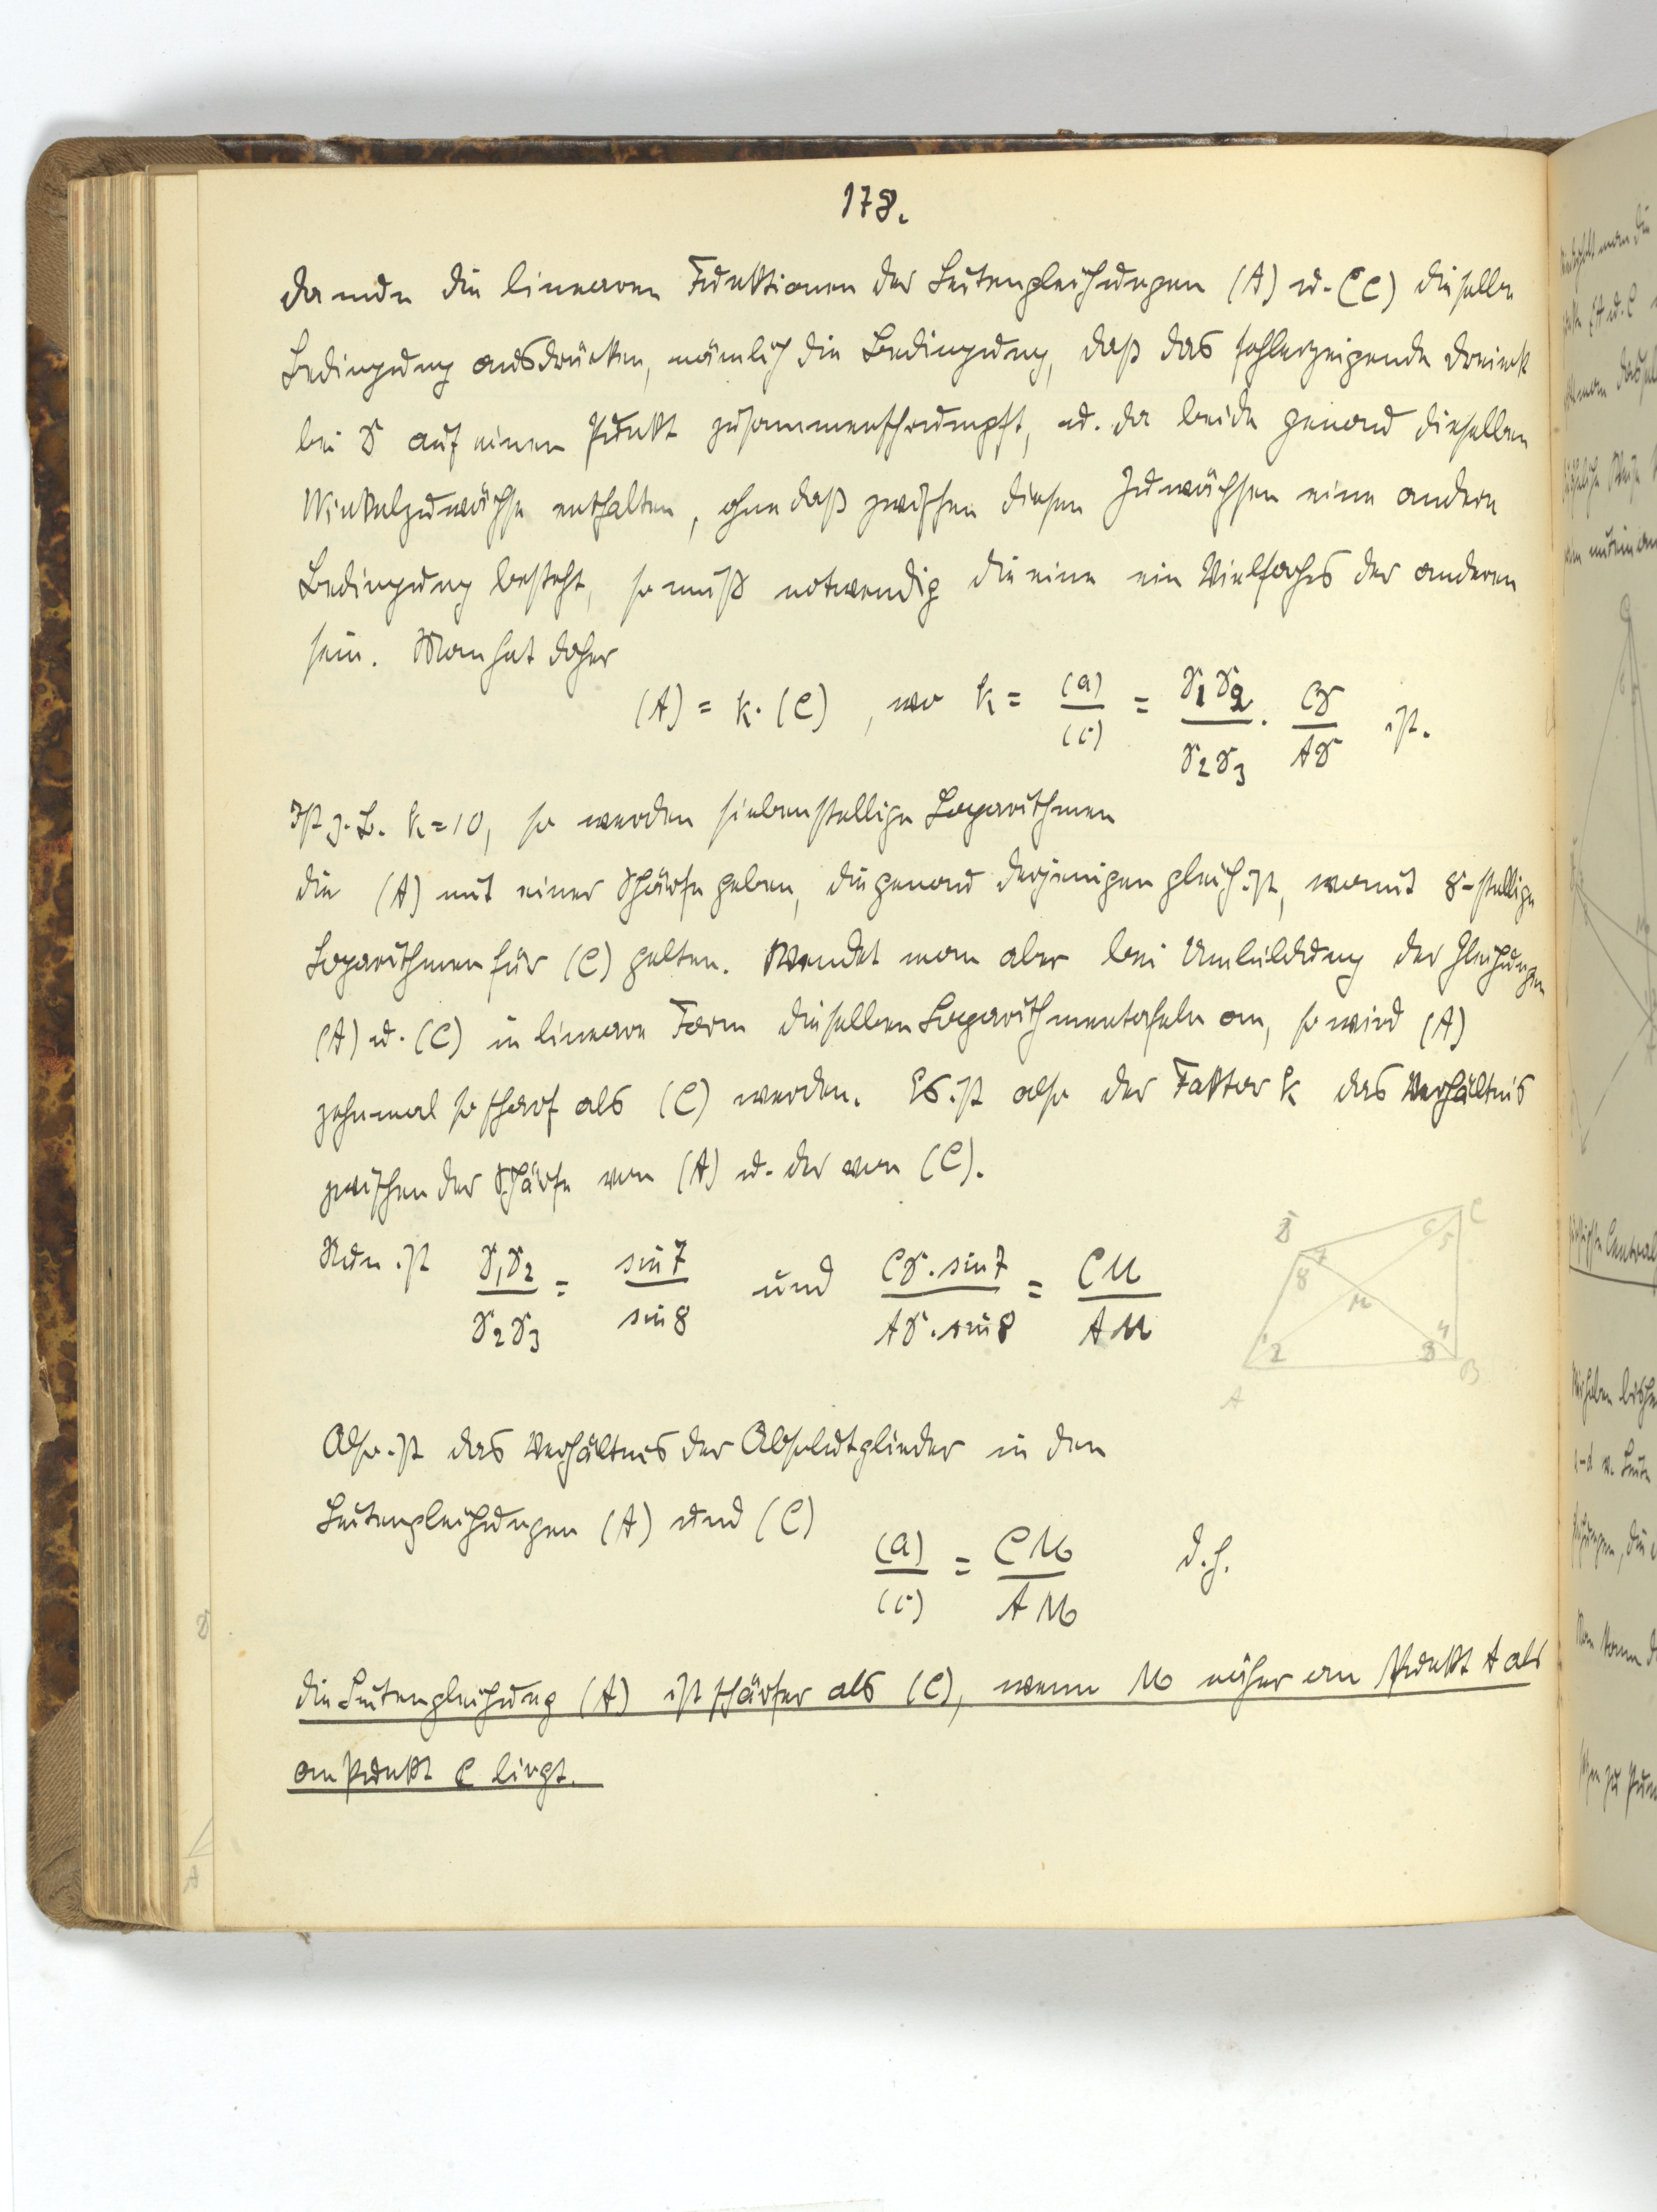 178.
Da nun die linearen Funktionen der Seitengleichungen (A) u. (C) dieselbe
Bedingung ausdrücken, nämlich die Bedingung, daß das fehlerzeigende Dreieck
bei D auf einen Punkt zusammenschrumpft, u. da beide genau dieselben
Winkelzuwächse enthalten, ohne daß zwischen diesen Zuwächsen eine andere
Bedingung besteht, so muß notwendig die eine ein Vielfaches der anderen
sein. Man hat daher
(A) = k. (C) , wo k = (a)/(c) = D1D2/D2D3 . CD/AD ist.
Ist z. B. k=10, so werden siebenstellige Logarithmen
die (A) mit einer Schärfe geben, die genau derjenigen gleich ist, womit 8-stellige
Logarithmen für (C) gelten. Wendet man aber bei Umbildung der Gleichungen
(A) u. (C) in lineare Form dieselben Logarithmentafeln an, so wird (A)
zehnmal so scharf als (C) werden. Es ist also der Faktor k das Verhältnis
zwischen der Schärfe von (A) u. der von (C).
Nun ist D1D2/D2D3 = sin 7/sin 8 und CD . sin 7/AD . sin 8 = CM/AM
D C
7 6 5
8
M
1 2 3 4
A B
Also ist das Verhältnis der Absolutglieder in den
Seitengleichungen (A) und (C)
(a)/(c) = CM/AM d. h.
die Seitengleichung (A) ist schärfer als (C), wenn M näher an Punkt A als
an Punkt C liegt.